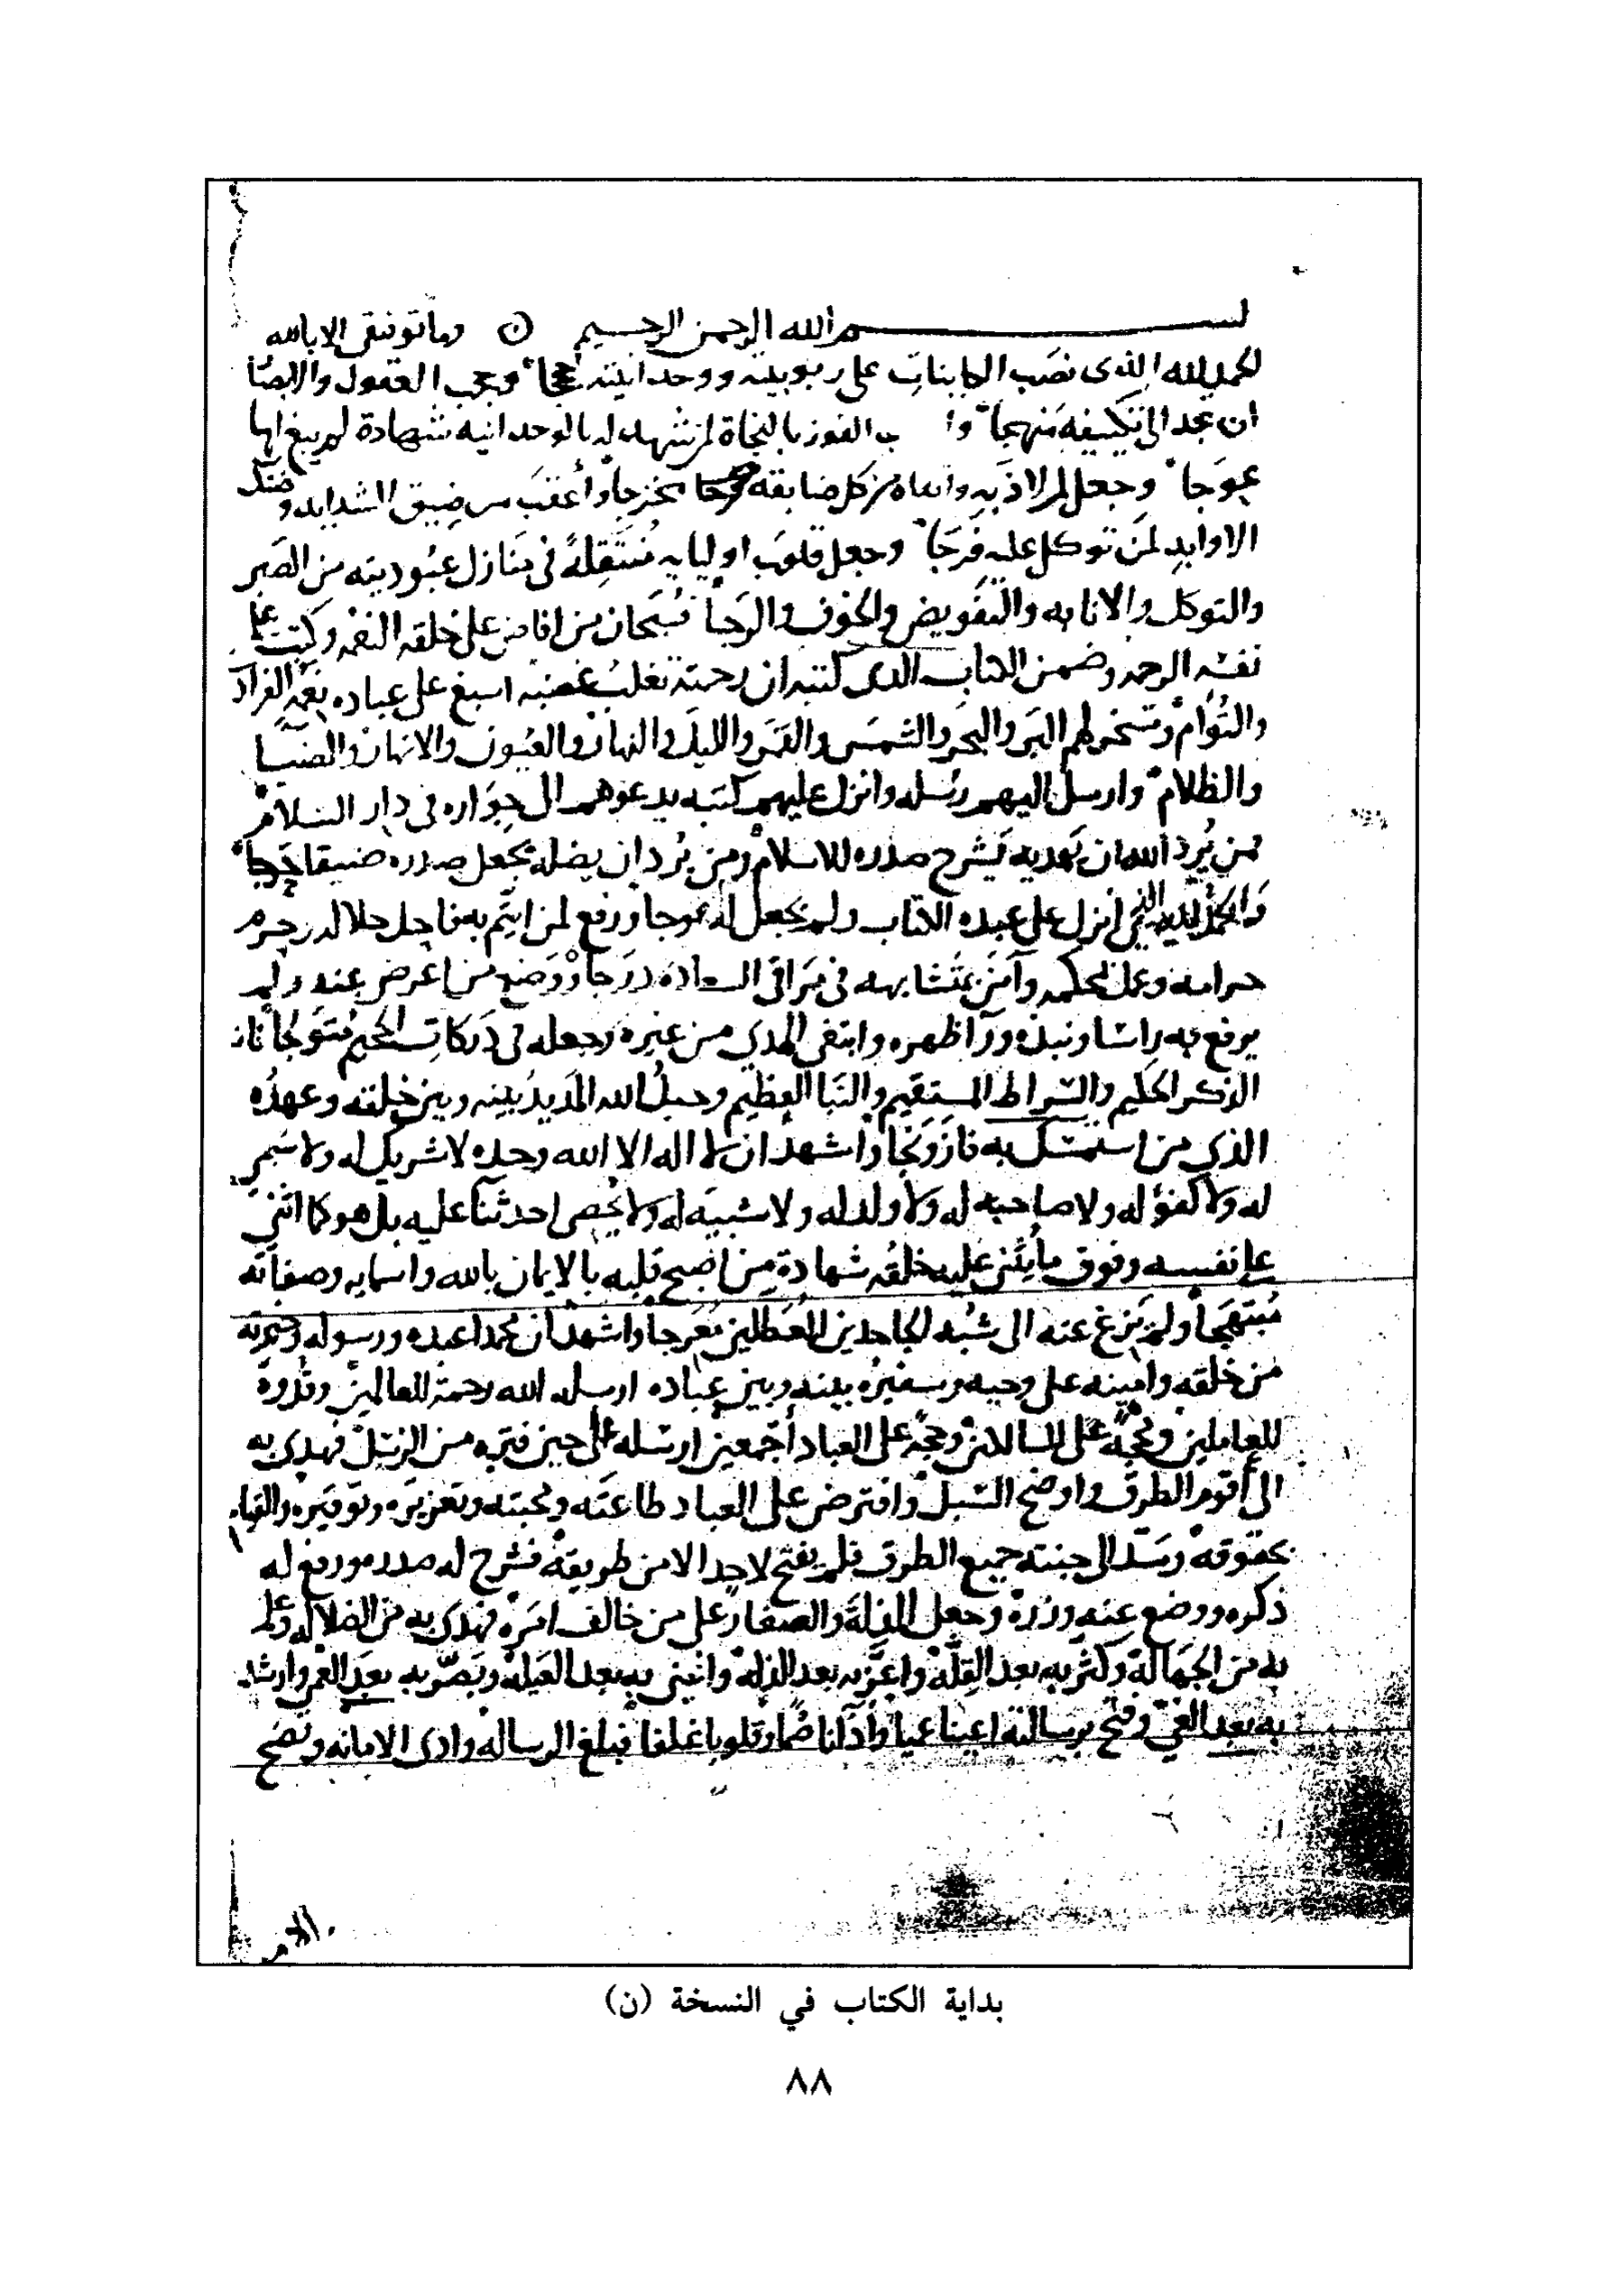 بسم الله الرحمن الرحيم وما توفيقي الا بالله
الحمد لله الذي نصب الكاينات على ربوبيته ووحدانيته حججا وحجب العقول والابصار
ان تجد الى تكييفه منهجا وا ب الفوز بالنجاة لمن شهد له بالوحدانيه شهادة لم يبغ لها
عوجا وجعل لمن لاذ به واتقاه من كل ضايقه مخرجا واعقب من ضيق الشدايد وضنك
الاوابد لمن توكل عليه فرجا وجعل قلوب اوليايه متنقلة في منازل عبوديته من الصبر
والتوكل والانابه والتفويض والخوف والرجا فسبحان من افاض على خلقه النعمه وكتب على
نفسه الرحمه وضمن الكتاب الذي كتبه ان رحمته تغلب غضبه اسبغ على عباده نعمه الفرادى
والتوام وسخر لهم البر والبحر والشمس والقمر والليل والنهار والعيون والانهار والضيا
والظلام وارسل اليهم رسله وانزل عليهم كتبه يدعوهم الى جواره في دار السلام
فمن يرد الله ان يهديه يشرح صدره للاسلام ومن يرد ان يضله يجعل صدره ضيقا حرجا
والحمد لله الذي انزل على عبده الكتاب ولم يجعل له عوجا ورفع لمن ايتم به فاحل حلاله وحرم
حرامه وعمل بمحكمه وآمن بمتشابهه في مراقي السعاده درجا ووضع من اعرض عنه ولم
يرفع به راسا ونبذه ورآ ظهره وابتغى الهدي من غيره وجعله في دركات الجحيم متولجا فانه
الذكر الحكيم والصراط المستقيم والنبا العظيم وحبل الله المديد بينه وبين خلقه وعهده
الذي من استمسك به فاز ونجا واشهد ان لا اله الا الله وحده لا شريك له ولا سمي
له ولا كفؤ له ولا صاحبه له ولا ولد له ولا شبيه له ولا يحصى احد ثنآ عليه بل هو كما اثنى
على نفسه وفوق ما يثني عليه خلقه شهادة من اصبح قلبه بالايمان بالله واسمايه وصفاته
مبتهجا ولم يزغ عنه الى شبه الجاحدين المعطلين معرجا واشهد ان محمدا عبده ورسوله وخيرته
من خلقه وامينه على وحيه وسفيره بينه وبين عباده ارسله الله رحمة للعالمين وقدوة
للعاملين ومحجة على السالكين وحجة على العباد اجمعين ارسله على حين فترة من الرسل فهدى به
الى أقوم الطرق واوضح السبل وافترض على العباد طاعته ومحبته وتعزيره وتوقيره والقيام
بحقوقه وسد الى جنته جميع الطرق فلم يفتح لاحد الا من طريقه فشرح له صدره ورفع له
ذكره ووضع عنه وزره وجعل الذلة والصغار على من خالف امره فهدى به من الضلاله وعلم
به من الجهالة وكثر به بعد القلة واعز به بعد الذلة واغنى به بعد العيلة وبصر به بعد العمى وارشد
به بعد الغي وفتح برسالته اعينا عميا واذآنا صما وقلوبا غلفا فبلغ الرساله وادى الامانه ونصح
الامه
بداية الكتاب في النسخة (ن)
٨٨